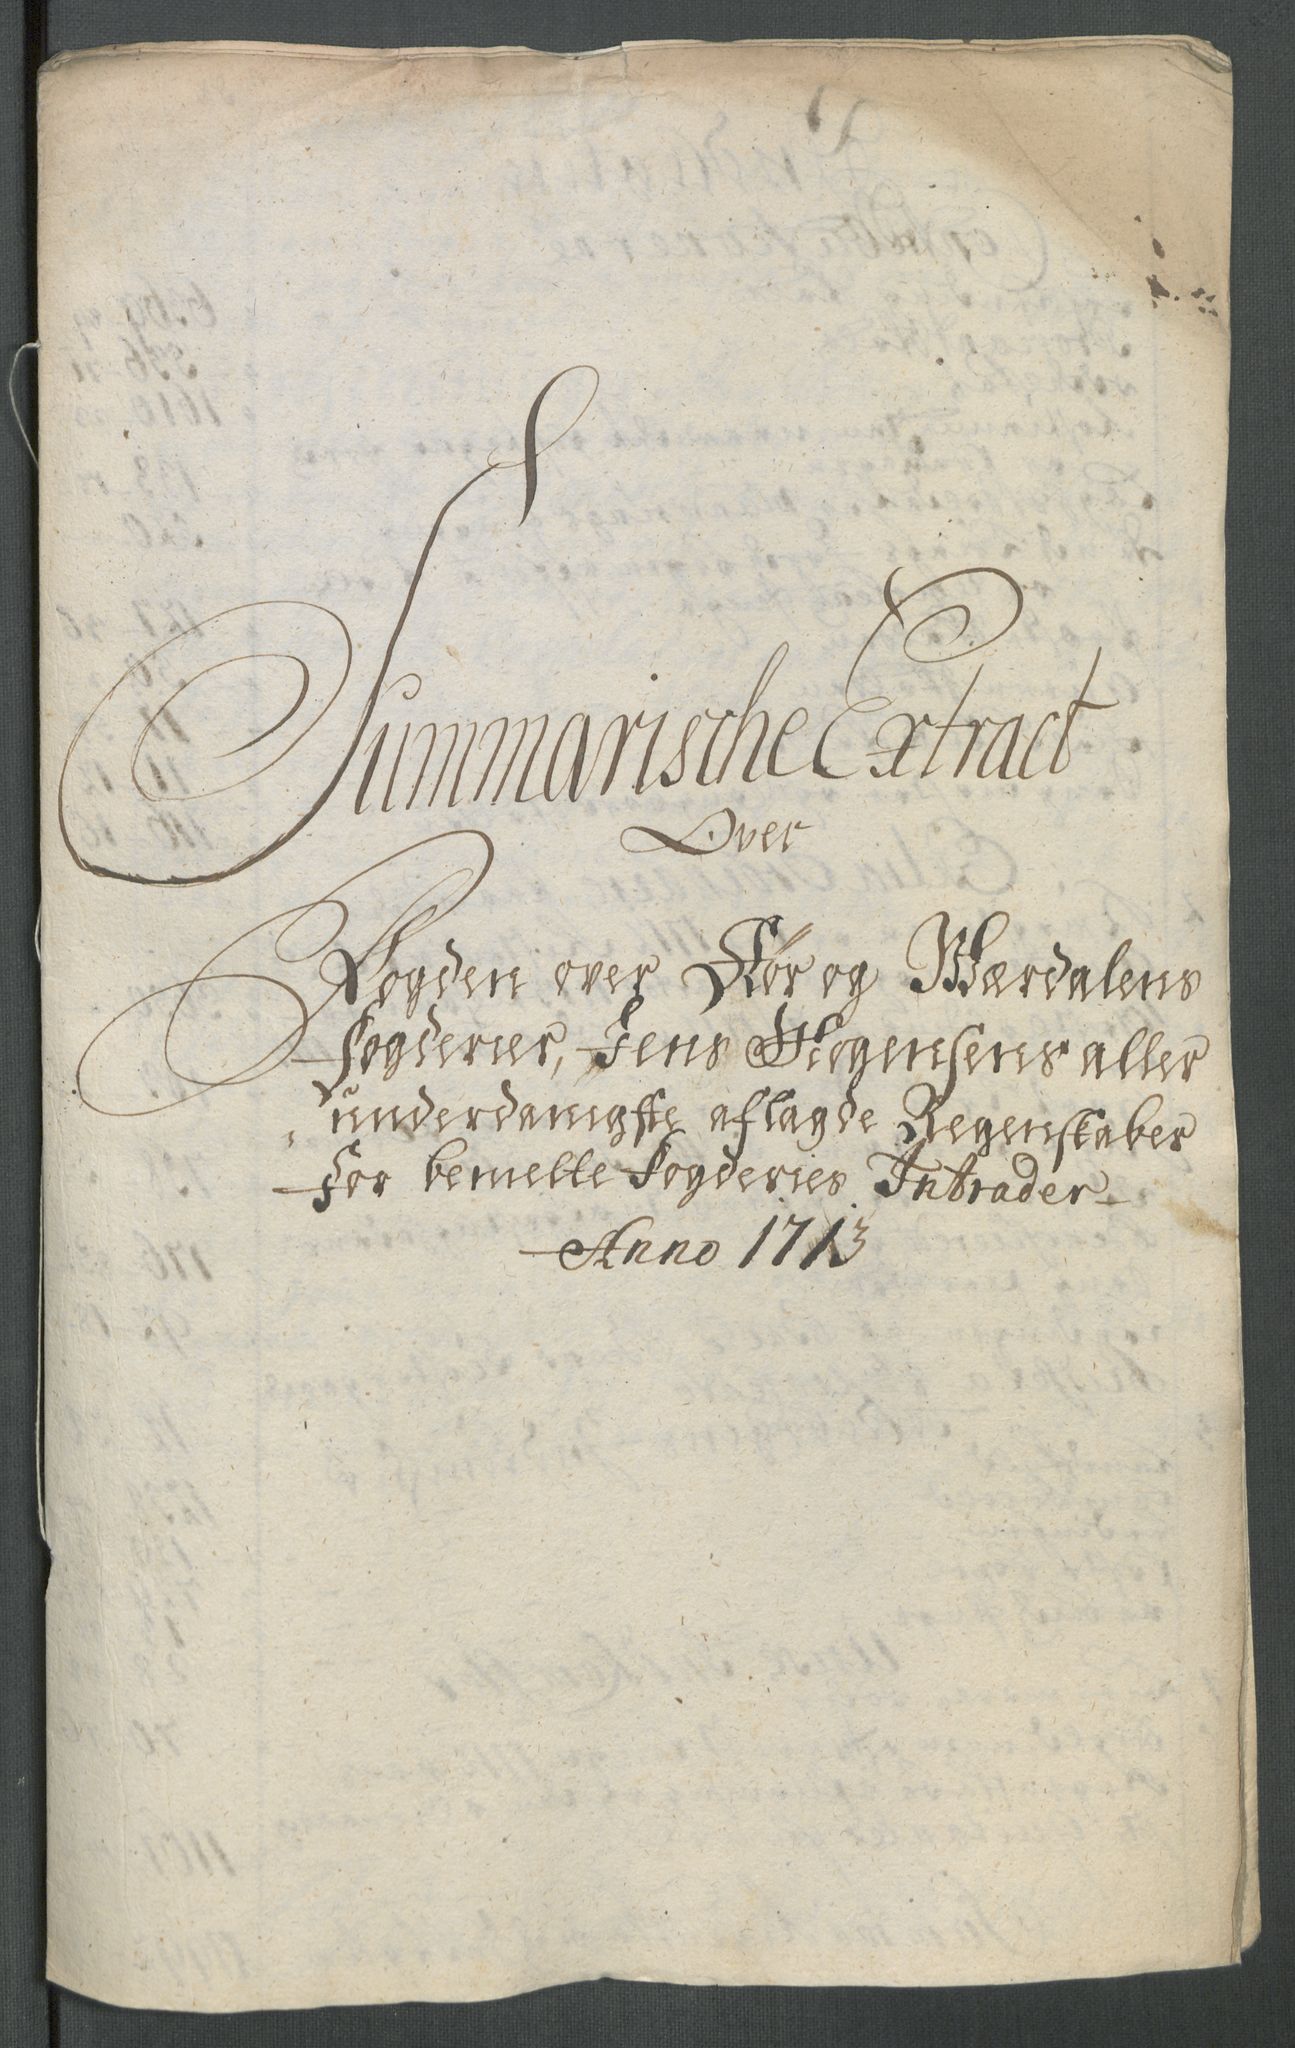 Summarische Extract
Over
Fogden over Stør og Wærdalens
fogderier, Jens aller
underdanigste aflagde Regenskaber
for bemelte fogderies Intrader
Anno 1713